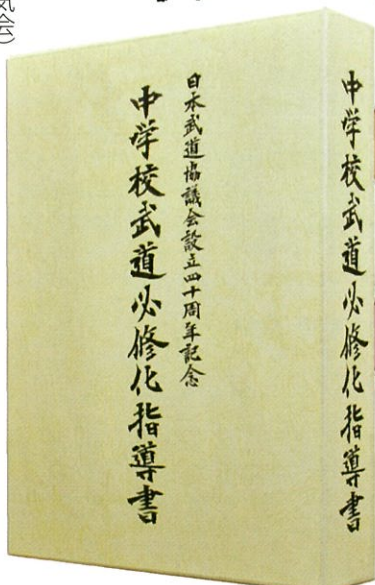 気会）
日本武道協議会設立四十周年記念
中学校武道必修化指導書
中学校武道必修化指導書